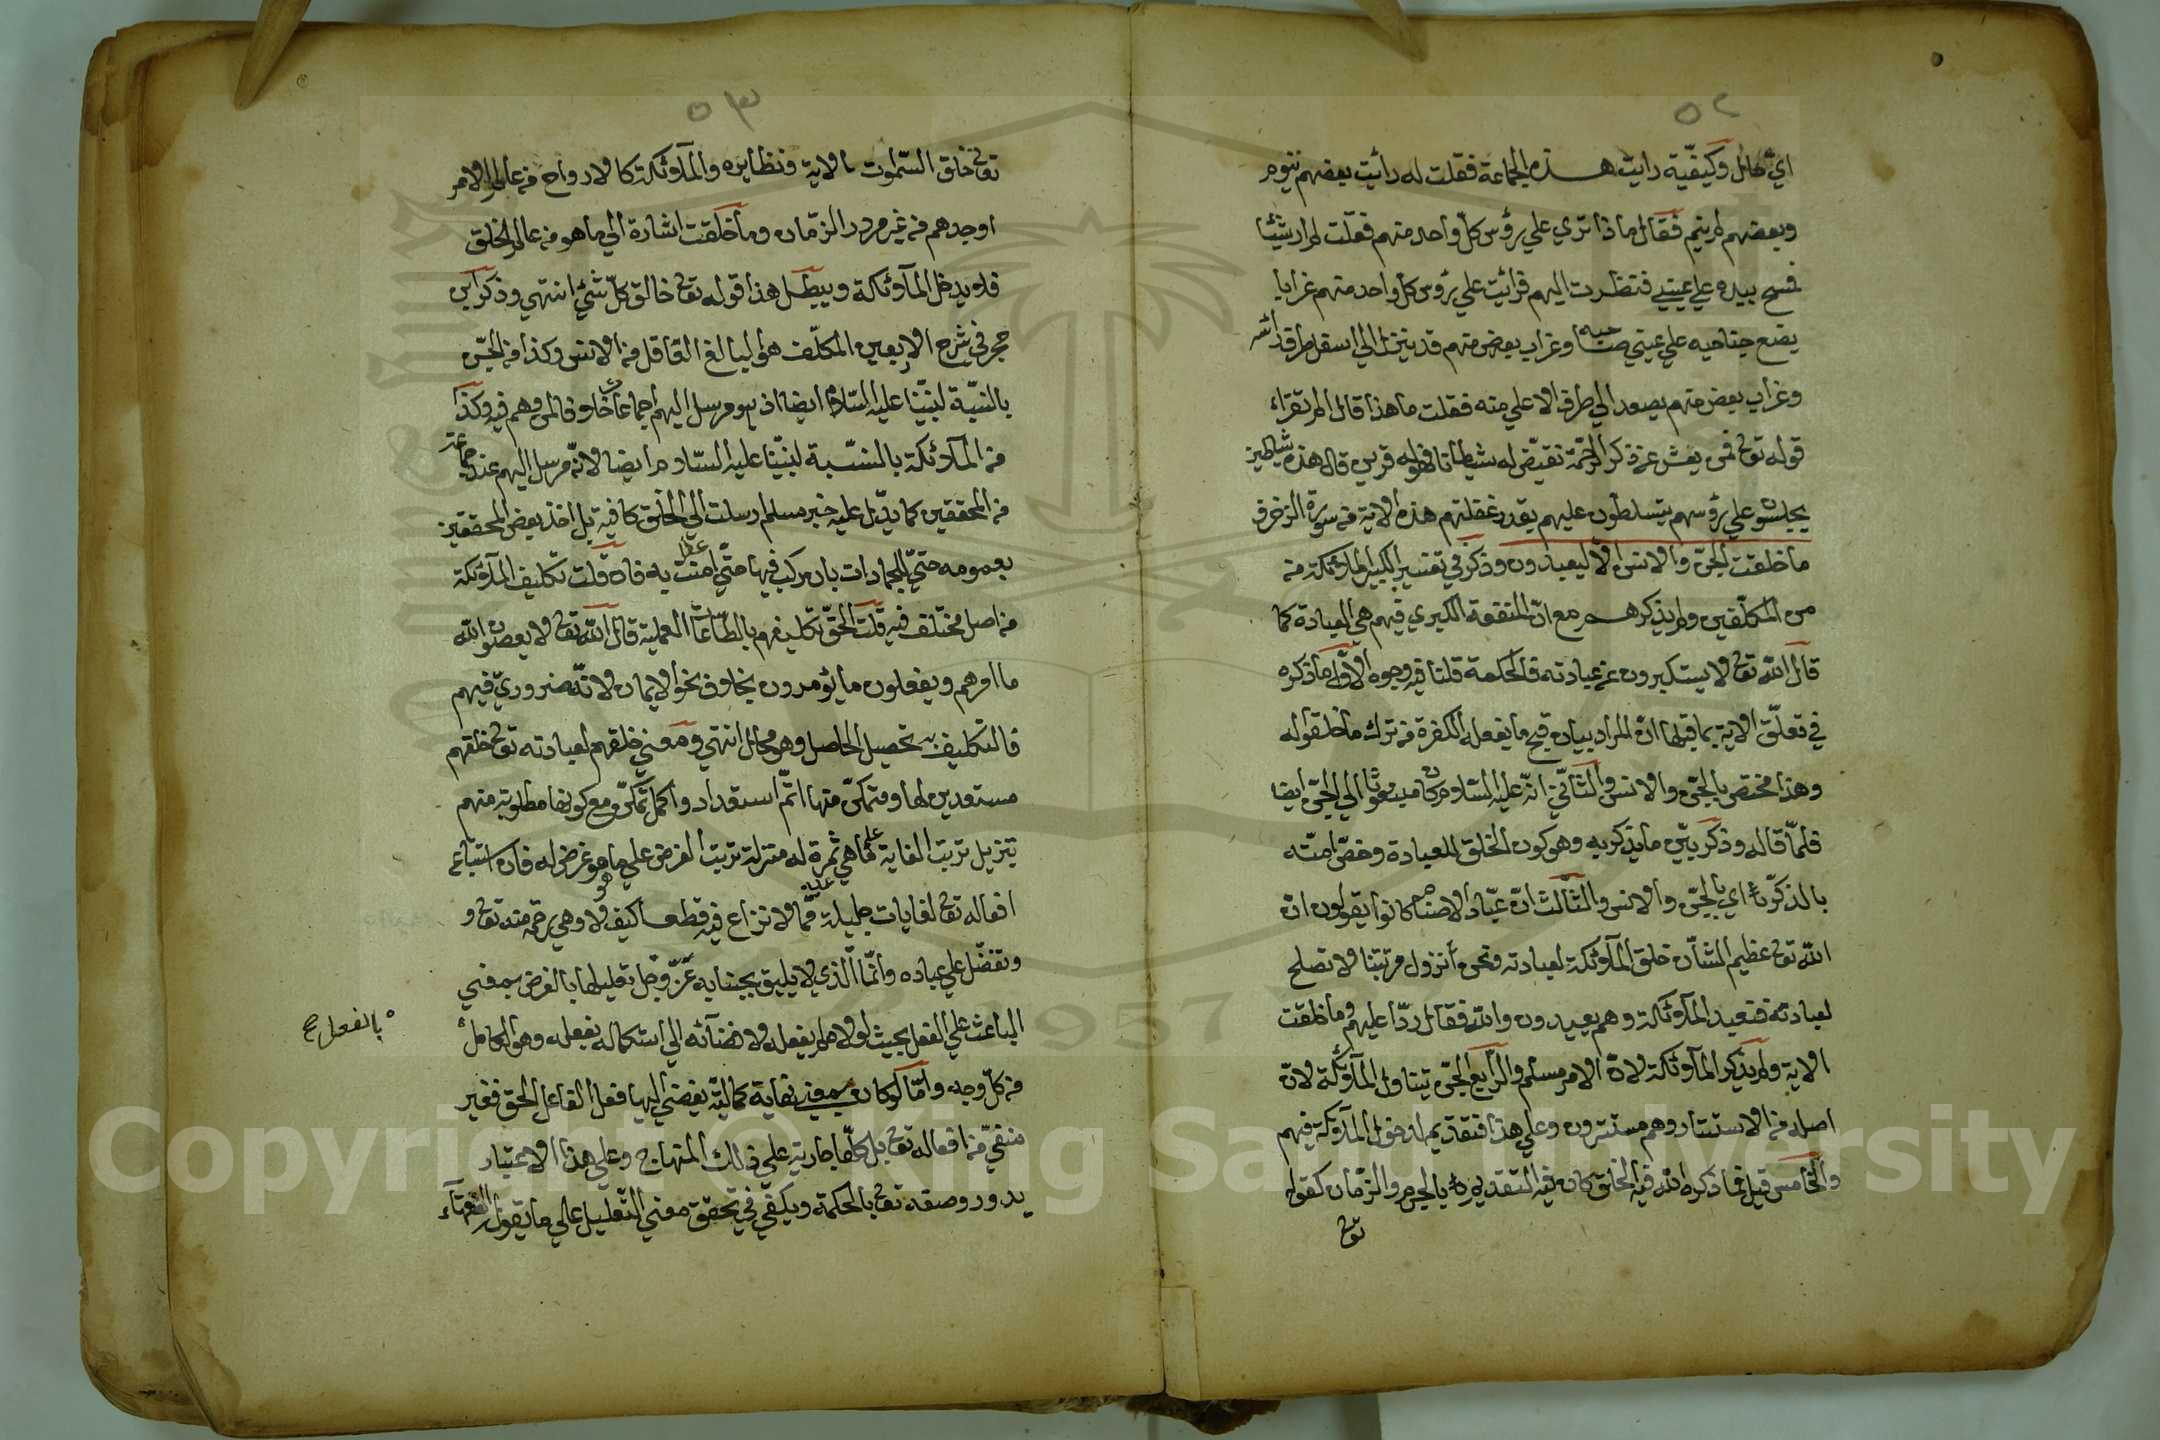 ٥٢
اي حال وكيفية رايت هذه الجماعة فقلت له رائيت بعضهم ينوم
وبعضهم لم ينم فقال ماذا تري علي رؤس كل واحد منهم فقلت لم ار شيئا
فمسح بيده علي عيني فنظرت اليهم فرائيت علي رؤس كل واحد منهم غرابا
يضع جناحيه علي عيني صاحبه وغراب بعض منهم قد ينزل الي اسفل طرف رأسه
وغراب بعض منهم يصعد الي طرف الاعلي منه فقلت ما هذا قال الم تقراء
قوله تع فمن يعش عن ذكر الرحمن نقيض له شيطانا فهو له قرين قال هذه شياطين
يجلسون علي رؤسهم يتسلطون عليهم بقدر غفلتهم هذه الاية من سورة الزخرف
ما خلقت الجن والانس الا ليعبدون وذكر في تفسير الكبير الملائكة من
من المكلفين ولم يذكرهم مع ان المنفعة الكبري فيهم هي العبادة كما
قال الله تع لا يستكبرون عن عبادته فالحكمة قلنا فيه وجوه الاول ما ذكره
في تعلق الاية بما قبلها ان المراد بيان قبح ما يفعله الكفرة من ترك ما خلقوا له
وهذا مختص بالجن والانس والثاني انه عليه السلام كان مبعوثا الي الجن ايضا
فلما قال له وذكر بين ما يذكر به وهو كون الخلق للعبادة وخص امته
بالذكر اي بالجن والانس والثالث ان عباد الاصنام كانوا يقولون ان
الله تع عظيم الشان خلق الملائكة لعبادته ونحن أنزل مرتبتا لا نصلح
لعبادته فنعبد الملائكة وهم يعبدون والله فقال ردا عليهم وما خلقت
الاية ولم يذكر الملائكة لان الامر مسلم والرابع الجن يتناول الملائكة لان
اصله من الاستتار وهم مستترون وعلي هذا فتقديمه لدخول الملائكة فيهم
والخامس قيل فما ذكره الله فيه الخلق كان فيه التقدير بالجرم والزمان كقوله
تع
٥٣
تع خلق السموات بالاية ونظايره والملائكة كالارواح من عالم الامر
اوجدهم من غير مرور الزمان وما خلقت اشارة الي ما هو من عالم الخلق
فلا يدخل الملائكة ويبطل هذا قوله تع خالق كل شئ انتهي وذكر ابن
حجر في شرح الاربعين المكلف هو البالغ العاقل من الانس وكذا من الجن
بالنسبة لنبينا عليه السلام ايضا اذ هو مرسل اليهم اجماعا خلافا لمن وهم فيه وكذا
من الملائكة بالنسبة لنبينا عليه السلام ايضا لانه مرسل اليهم عند جماعة
من المحققين كما يدل عليه خبر مسلم ارسلت الي الخلق كافة بل اخذ بعض المحققين
بعمومه حتي للجمادات بان ركب فيها عقل حتي امنت به فان قلت تكليف الملائكة
من اصل مختلف فيه قلت الحق تكليفهم بالطاعات العملية قال الله تع لا يعصون الله
ما امرهم ويفعلون ما يؤمرون بخلاف نحو الايمان لانه ضروري فيهم
فالتكليف به تحصيل الحاصل وهو محال انتهي ومعني خلقهم لعبادته تع خلقهم
مستعدين لها ومتمكن منها اتم استعداد واكمل تمكن مع كونها مطلوبة منهم
تنزيل ترتب الغاية علي ما هي ثمرة له منزلة ترتب الغرض علي ما هو غرض له فان استتباع
افعاله تع لغايات جليلة مما لا نزاع فيه قطعا كيف لا وهي رحمة منه تع و
وتفضل علي عباده وانما الذي لا يليق بجنابه عز وجل تعليلها بالغرض بمعني
الباعث علي الفعل بحيث لولاه لم يفعله لافضائه الي استكماله بفعله وهو الكامل
بالفعل صح
من كل وجه واما لو كان بمعني نهاية كمالية يفضي اليها فعل الفاعل الحق فغير
منفي من افعاله تع بل كلها جارية علي ذلك المنهاج وعلي هذا الاعتبار
يدور وصفه تع بالحكمة ويكفي في تحقق معني التعليل علي ما يقول الفقهاء